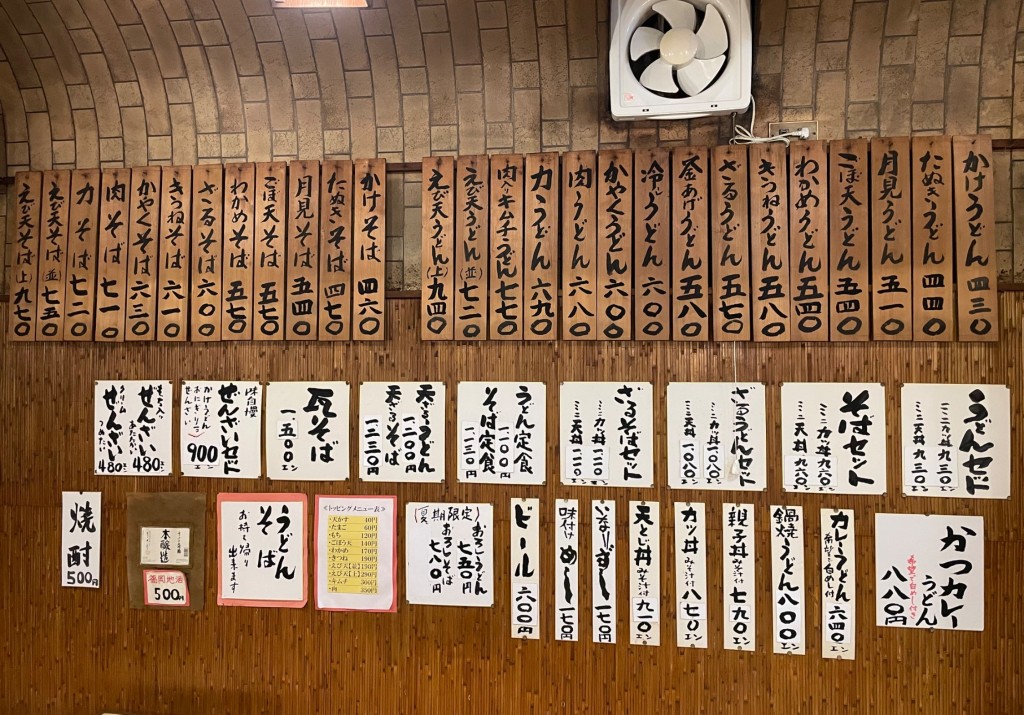 かけうどん 四三〇
たぬきうどん 四四〇
月見うどん 五一〇
ごぼ天うどん 五四〇
わかめうどん 五四〇
きつねうどん 五八〇
ざるうどん 五七〇
釜あげうどん 五八〇
冷しうどん 六〇〇
かやくうどん 六〇〇
肉うどん 六八〇
力うどん 六九〇
肉入りキムチうどん 七七〇
えび天うどん(並) 七二〇
えび天うどん(上) 九四〇
かけそば 四六〇
たぬきそば 四七〇
月見そば 五四〇
ごぼ天そば 五七〇
わかめそば 五七〇
ざるそば 六〇〇
きつねそば 六一〇
かやくそば 六三〇
肉そば 七一〇
力そば 七二〇
えび天そば(並) 七五〇
えび天そば(上) 九七〇
うどんセット
ミニカツ丼 九三〇
ミニ天丼 九三〇エン
そばセット
ミニカツ丼 九六〇
ミニ天丼 九六〇エン
ざるうどんセット
ミニカツ丼 一〇八〇
ミニ天丼 一〇八〇エン
ざるそばセット
ミニカツ丼 一一一〇
ミニ天丼 一一一〇エン
うどん定食 一一〇〇エン
そば定食 一一三〇エン
天ざるうどん 一二〇〇エン
天ざるそば 一二三〇エン
瓦そば
一一五〇エン
味自慢
ぜんざいセット
かけうどん
おにぎり一コ
ぜんざい
900エン
ぜんざい 480エン
あたたかい
クリーム
ぜんざい 480エン
つめたい
かつカレー
うどん
希望で白めし付き
八八〇円
カレーうどん 希望で白めし付 六四〇エン
鍋焼うどん 八〇〇エン
親子丼 みそ汁付 七九〇エン
カツ丼 みそ汁付 八七〇エン
天とじ丼 みそ汁付 九一〇エン
いなりずし 一七〇円
味付けめし 一七〇円
ビール 六〇〇円
(夏期限定)
おろしうどん 七五〇円
おろしそば 七八〇円
≪トッピングメニュー表≫
・天かす 40円
・たまご 60円
・もち 120円
・ごぼう天 140円
・わかめ 170円
・きつね 190円
・えび天【並】 190円
・えび天【上】 290円
・キムチ 300円
・肉 350円
うどん
そば
お持ち帰り
出来ます
本醸造
福岡地酒
500円
焼酎
500円